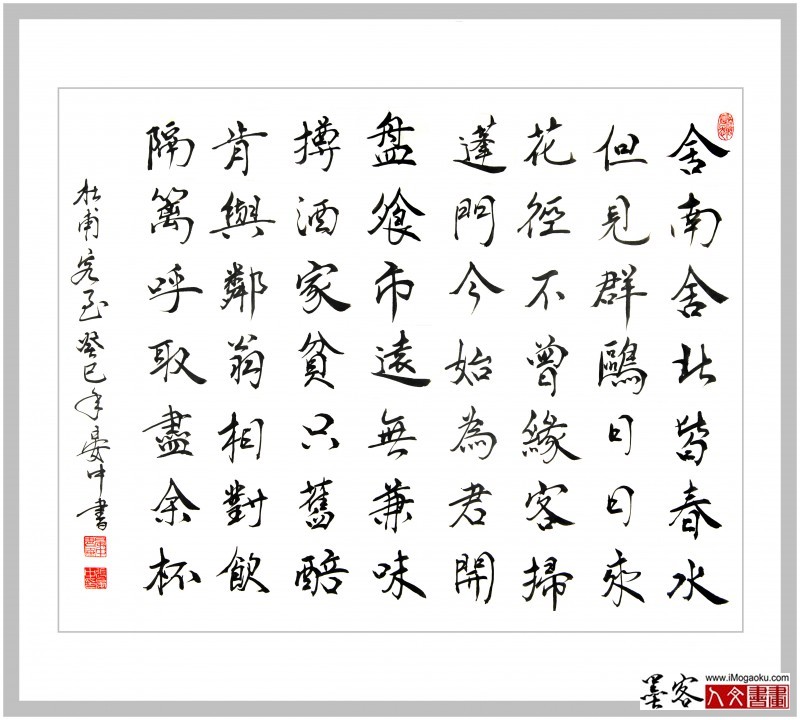 舍南舍北皆春水
但見群鷗日日來
花徑不曾緣客掃
蓬門今始為君開
盤飧市遠無兼味
搏酒家貧只舊醅
肯與鄰翁相對飲
隔籬呼取盡余杯
杜甫客至癸巳年晏中書
墨客
www.iMogaoku.com
人文書畫